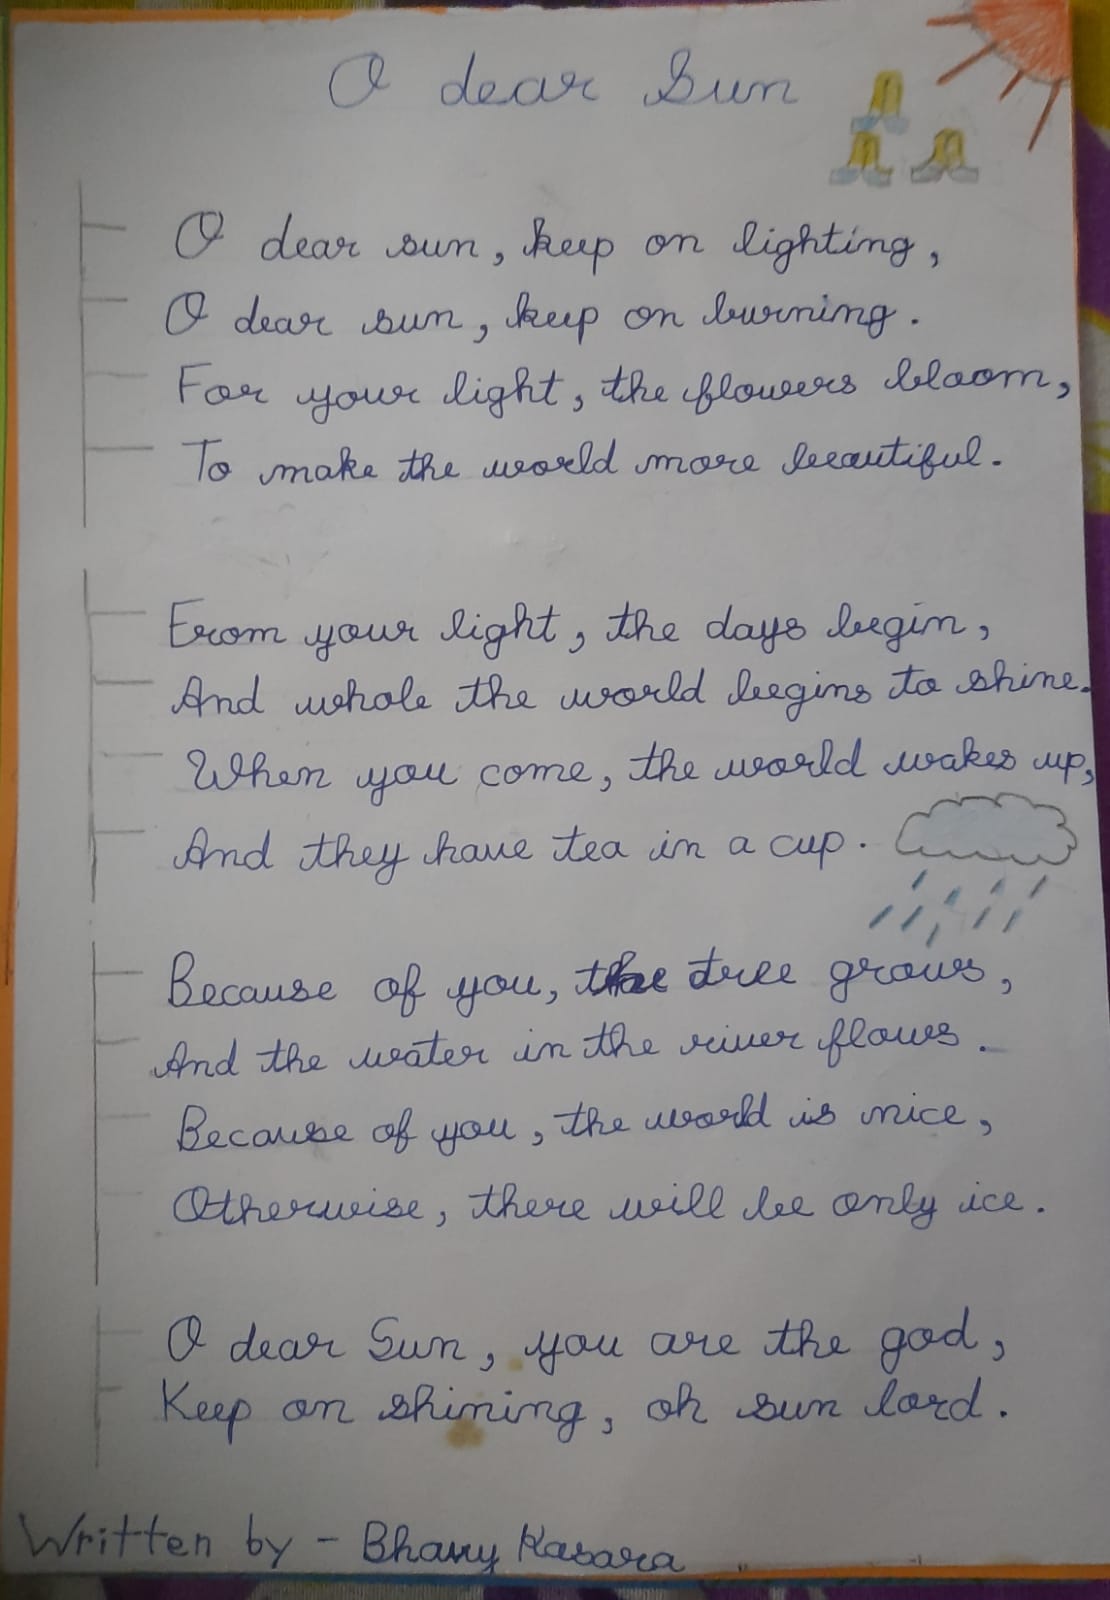 O dear Sun
O dear sun, keep on lighting,
O dear sun, keep on burning.
For your light, the flowers bloom,
To make the world more beautiful.
From your light, the days begin,
And whole the world begins to shine.
When you come, the world wakes up,
And they have tea in a cup.
Because of you, the tree grows,
And the water in the river flows.
Because of you, the world is nice,
Otherwise, there will be only ice.
O dear Sun, you are the god,
Keep on shining, oh sun lord.
Written by - Bhavy Kasara